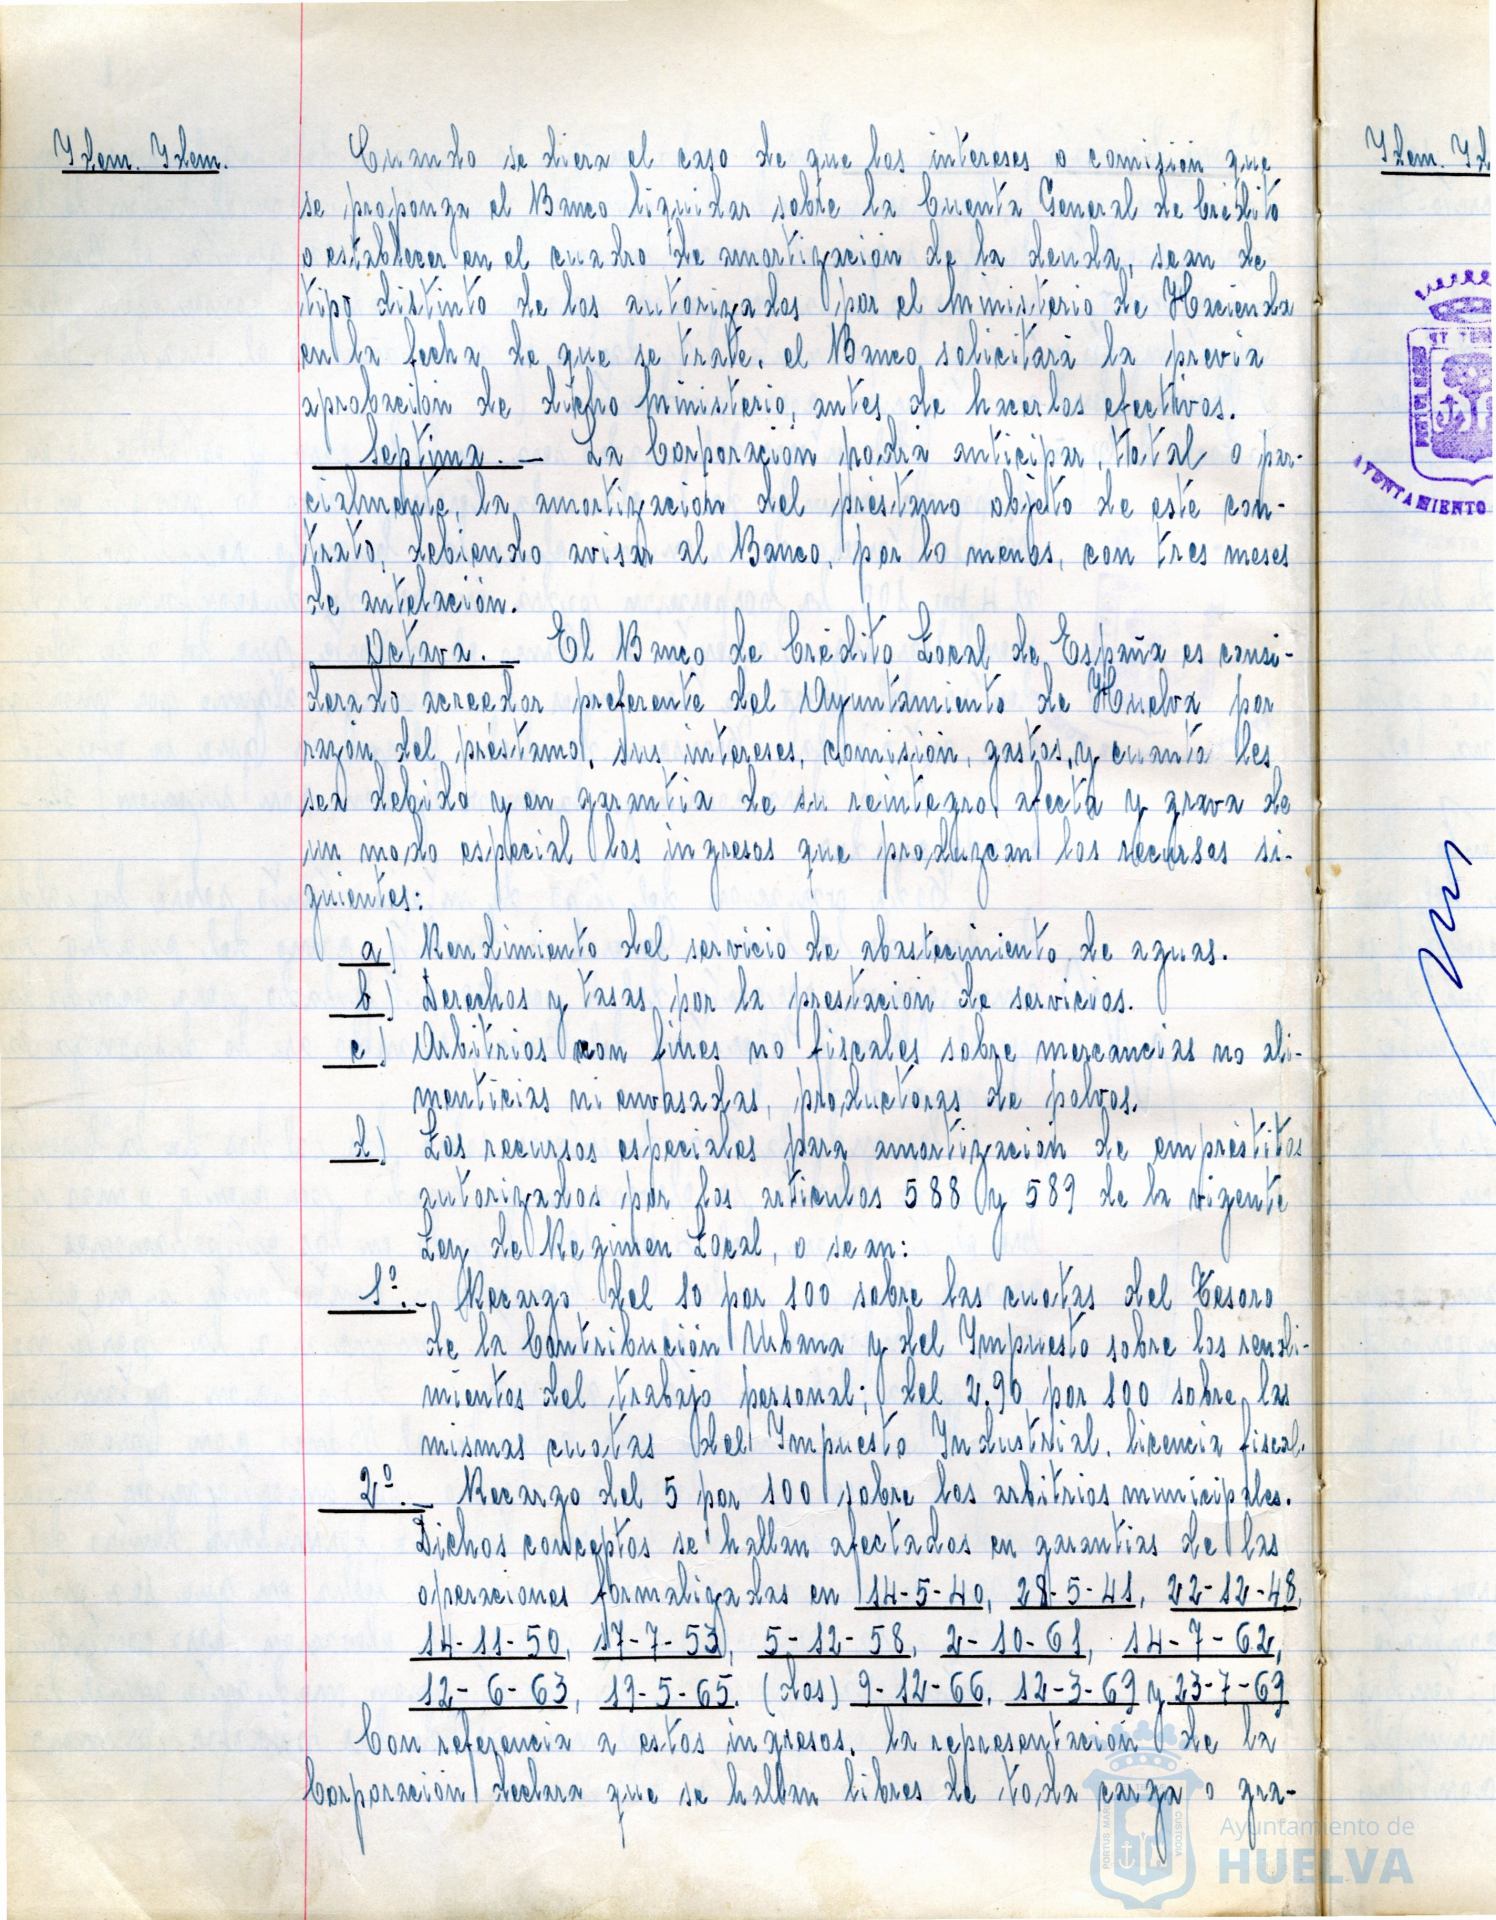 Idem. Idem.
Cuando se diera el caso de que los intereses o comisión que
se proponga el Banco liquidar sobre la Cuenta General de Crédito
o establecer en el cuadro de amortización de la deuda, sean de
tipo distinto de los autorizados por el Ministerio de Hacienda
en la fecha de que se trate, el Banco solicitará la previa
aprobación de dicho Ministerio, antes de hacerlos efectivos.
Septima.- La Corporación podrá anticipar, total o par-
cialmente, la amortización del préstamo objeto de este con-
trato, debiendo avisar al Banco, por lo menos, con tres meses
de antelación.
Octava.- El Banco de Crédito Local de España es consi-
derado acreedor preferente del Ayuntamiento de Huelva por
razón del préstamo, sus intereses, comisión, gastos, y cuanto les
sea debido y en garantía de su reintegro, afecta y grava de
un modo especial los ingresos que produzcan los recursos si-
guientes:
a) Rendimiento del servicio de abastecimiento de aguas.
b) Derechos y tasas por la prestación de servicios.
c) Arbitrios con fines no fiscales sobre mercancias no ali-
menticias ni envasadas, productoras de polvos.
d) Los recursos especiales para amortización de empréstitos
autorizados por los artículos 588 y 589 de la vigente
Ley de Regimen Local, o sean:
1º.- Recargo del 10 por 100 sobre las cuotas del Tesoro
de la Contribución Urbana y del Impuesto sobre los rendi-
mientos del trabajo personal; del 2,90 por 100 sobre las
mismas cuotas del Impuesto Industrial, licencia fiscal.
2º.- Recargo del 5 por 100 sobre los arbitrios municipales.
Dichos conceptos se hallan afectados en garantias de las
operaciones formalizadas en 14-5-40, 28-5-41, 22-12-48,
14-11-50, 17-7-53, 5-12-58, 2-10-61, 14-7-62,
12-6-63, 19-5-65, (dos) 9-12-66, 12-3-69 y 23-7-69
Con referencia a estos ingresos, la representación de la
Corporación declara que se hallan libres de toda carga o gra-
Idem. Id
AYUNTAMIENTO
Ayuntamiento de
HUELVA